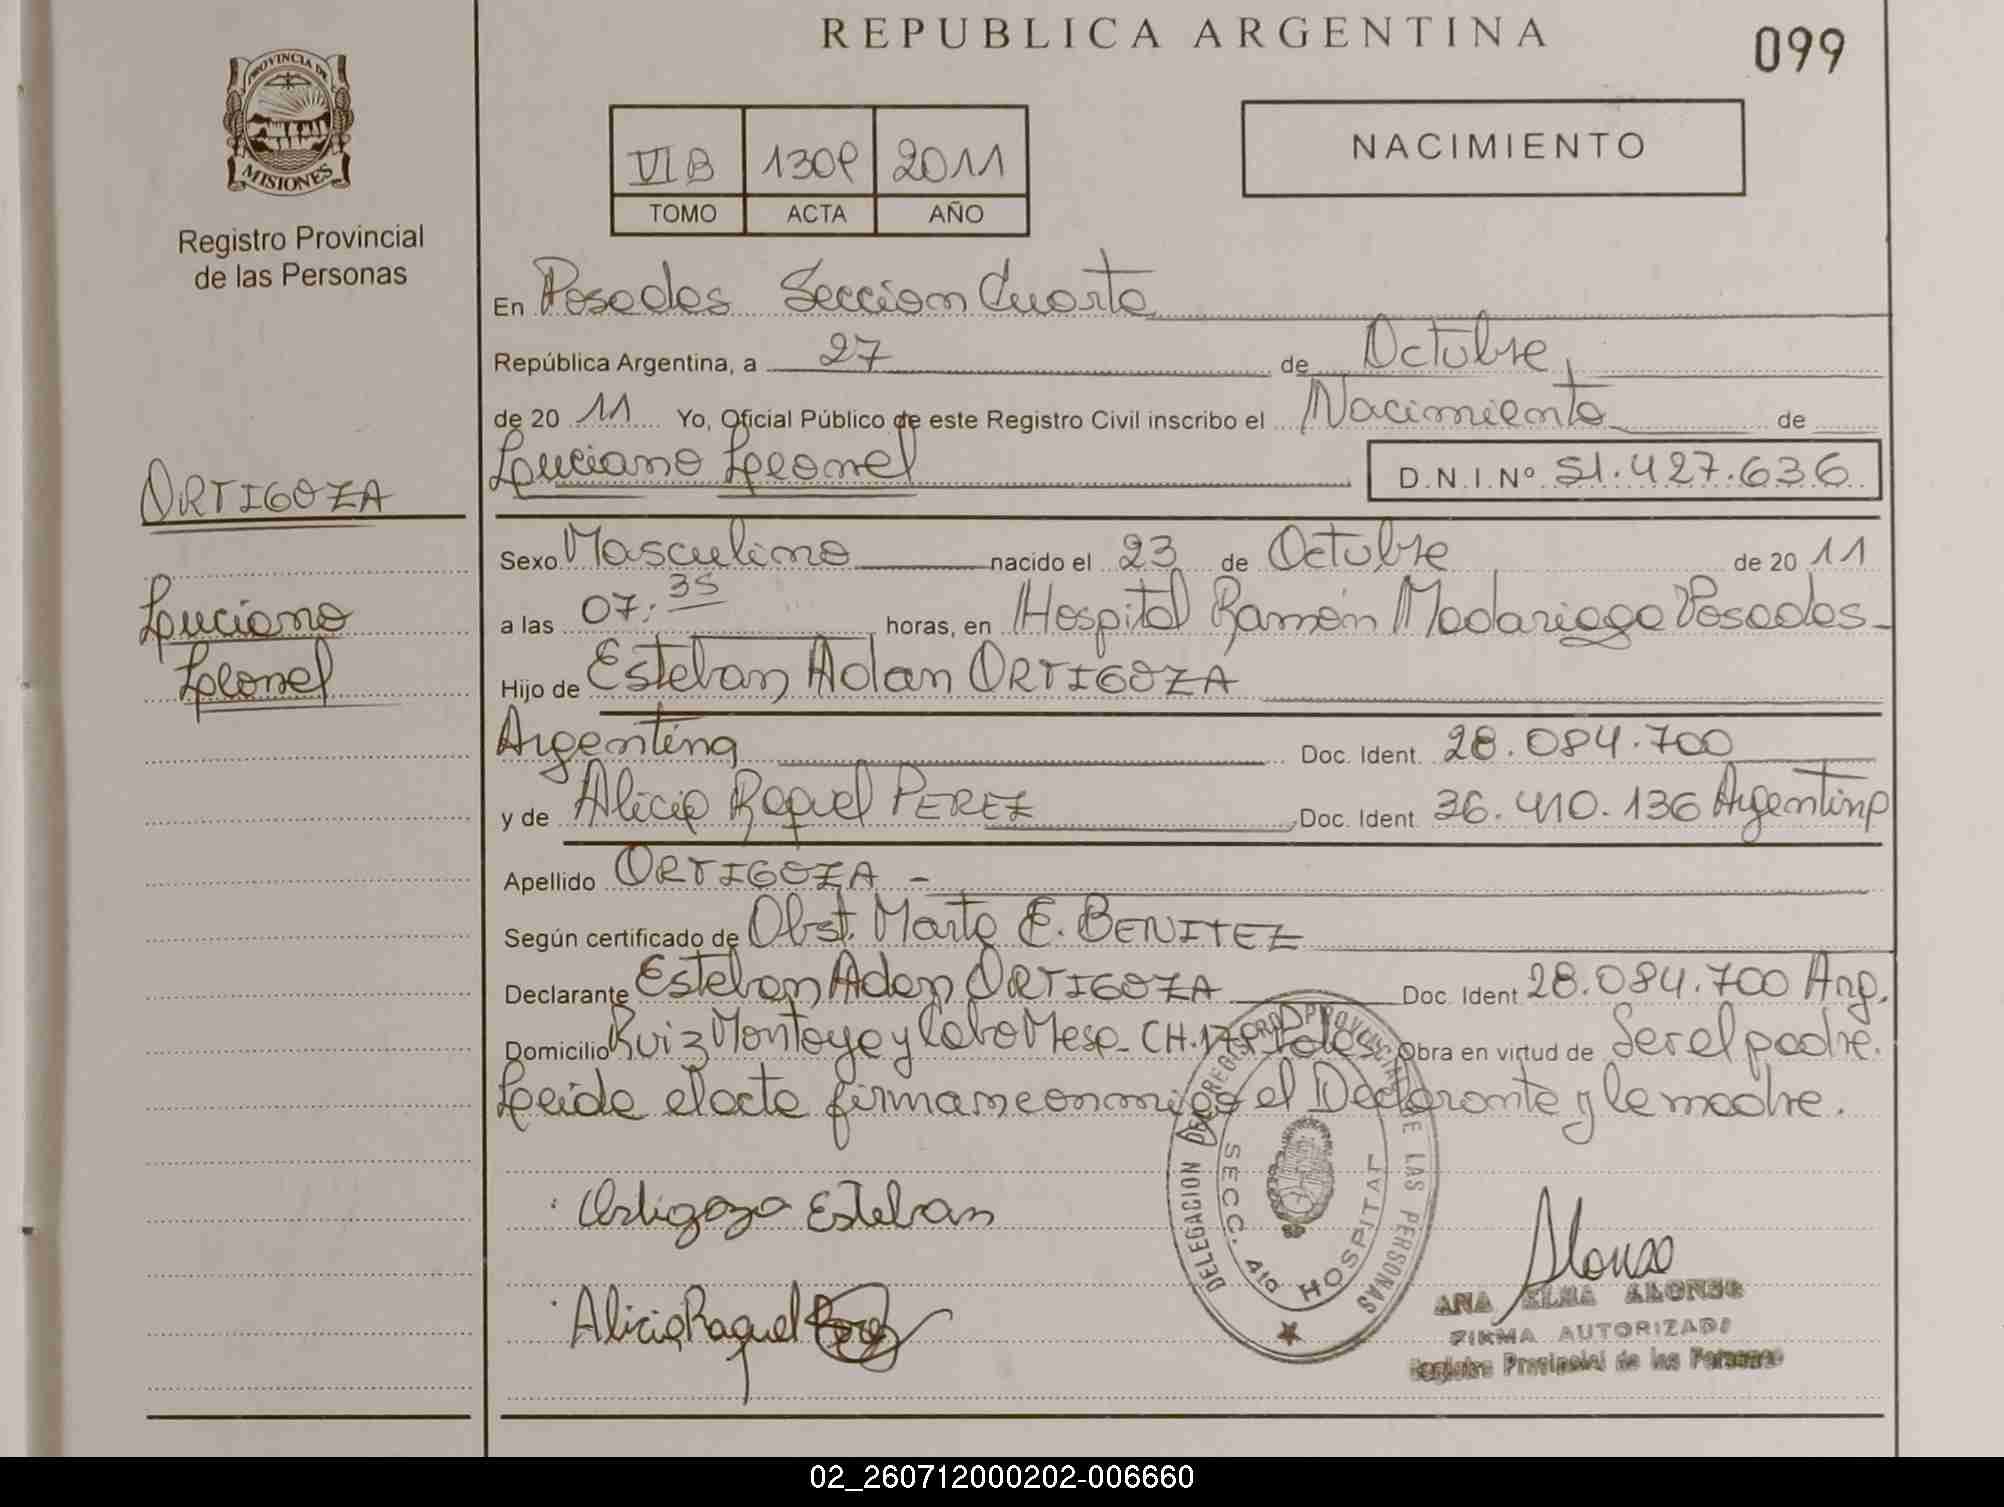 REPUBLICA ARGENTINA
099
PROVINCIA DE
MISIONES
Registro Provincial
de las Personas
VI B 130 2011
TOMO ACTA AÑO
NACIMIENTO
En Posadas Seccion Cuarta
República Argentina, a 27 de Octubre
de 20 11 Yo, Oficial Público de este Registro Civil inscribo el Nacimiento de
Luciano Leonel D.N.I.Nº 51.427.636
ORTIGOZA
Luciano
Leonel
Sexo Masculino nacido el 23 de Octubre de 20 11
a las 07:35 horas, en Hospital Ramón Madariaga Posadas-
Hijo de Esteban Adan ORTIGOZA
Argentina Doc. Ident. 28.084.700
y de Alicia Raquel PEREZ Doc. Ident. 36.410.136 Argentina
Apellido ORTIGOZA -
Según certificado de Obst. Marta E. BENITEZ
Declarante Esteban Adan ORTIGOZA Doc. Ident 28.084.700 Arg.
Domicilio Ruiz Montoya y Cabo Mesa - CH. Obra en virtud de Ser el padre.
Leida el acta firman conmigo el Declarante y la madre.
DELEGACION DEL REGISTRO PROVINCIAL DE LAS PERSONAS
SECC. 4ta HOSPITAL
Ortigoza Esteban
Alicia Raquel Perez
Alonso
ANA ELMA ALONSO
FIRMA AUTORIZADA
Registro Provincial de las Personas
02_260712000202-006660